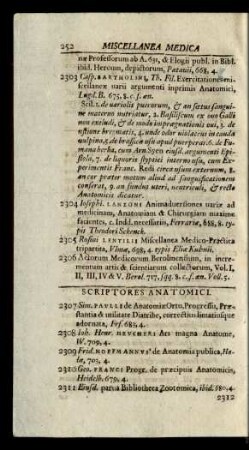 252 MISCELLANEA MEDICA
næ Professorum ab A. 631, & Elogii publ. in Bibl.
ibid. Heroum, depictorum, Patavii, 668, 4.
2303 Casp. BARTHOLINI, Th. Fil. Exercitationes mi-
scellaneæ varii argumenti inprimis Anatomici,
Lugd. B. 675, 8. c. f. æn.
Scil. 1. de variolis puerorum, & an fœtus sangui-
ne materno nutriatur, 2. Basiliscum ex ovo Galli
non excludi, & de modo impragnationis ovi, 3. de
ustione brevmatis, 4. unde odor violaceus in cauda
vulpina, 5. de brassica usu apud puerperas, 6. de Fu-
mana herba, cum Am. Syen ejusd. argumenti Episto-
la, 7. de liquoris styptici interno usu, cum Experi-
mentis Franc. Redi circa usum externum, 8.
an cor præter motum aliud ad sanguificationem
conferat, 9. an fundus uteri, neutriculi, & recte
Anatomicis dicatur.
2304 Josephi. LANZONI Animadversiones variæ ad
medicinam, Anatomiam & Chirurgiam maxime
facientes, c. Ind. necessariis, Ferrariæ, 688, 8. ty-
pis Theodori Schenck.
2305 Rosini LENTILII Miscellanea Medico-Practica
tripartita, Vlmæ, 698, 4. typis Eliæ Kuhnii.
2306 Actorum Medicorum Berolinensium, in incre-
mentum artis & scientiarum collectorum, Vol. I,
II, III, IV & V. Berol. 717, sqq. 8. c. f. æn. Vol. 5.
SCRIPTORES ANATOMICI.
2307 Sim. PAULLI de Anatomiæ Ortu, Progressu, Præ-
stantia & utilitate Diatribe, correctior limatiusque
adornata, Frf. 685, 4.
2308 Joh. Henr. MEUCHERI Ars magna Anatome,
W. 709, 4.
2309 Frid. HOFFMANNUS de Anatomia publica, Ha-
læ, 703, 4.
2310 Geo. FRANCI Progr. de præcipuis Anatomicis,
Heidelb. 679, 4.
2311 Ejusd. parva Bibliotheca Zootomica, ibid. 680, 4.
2312